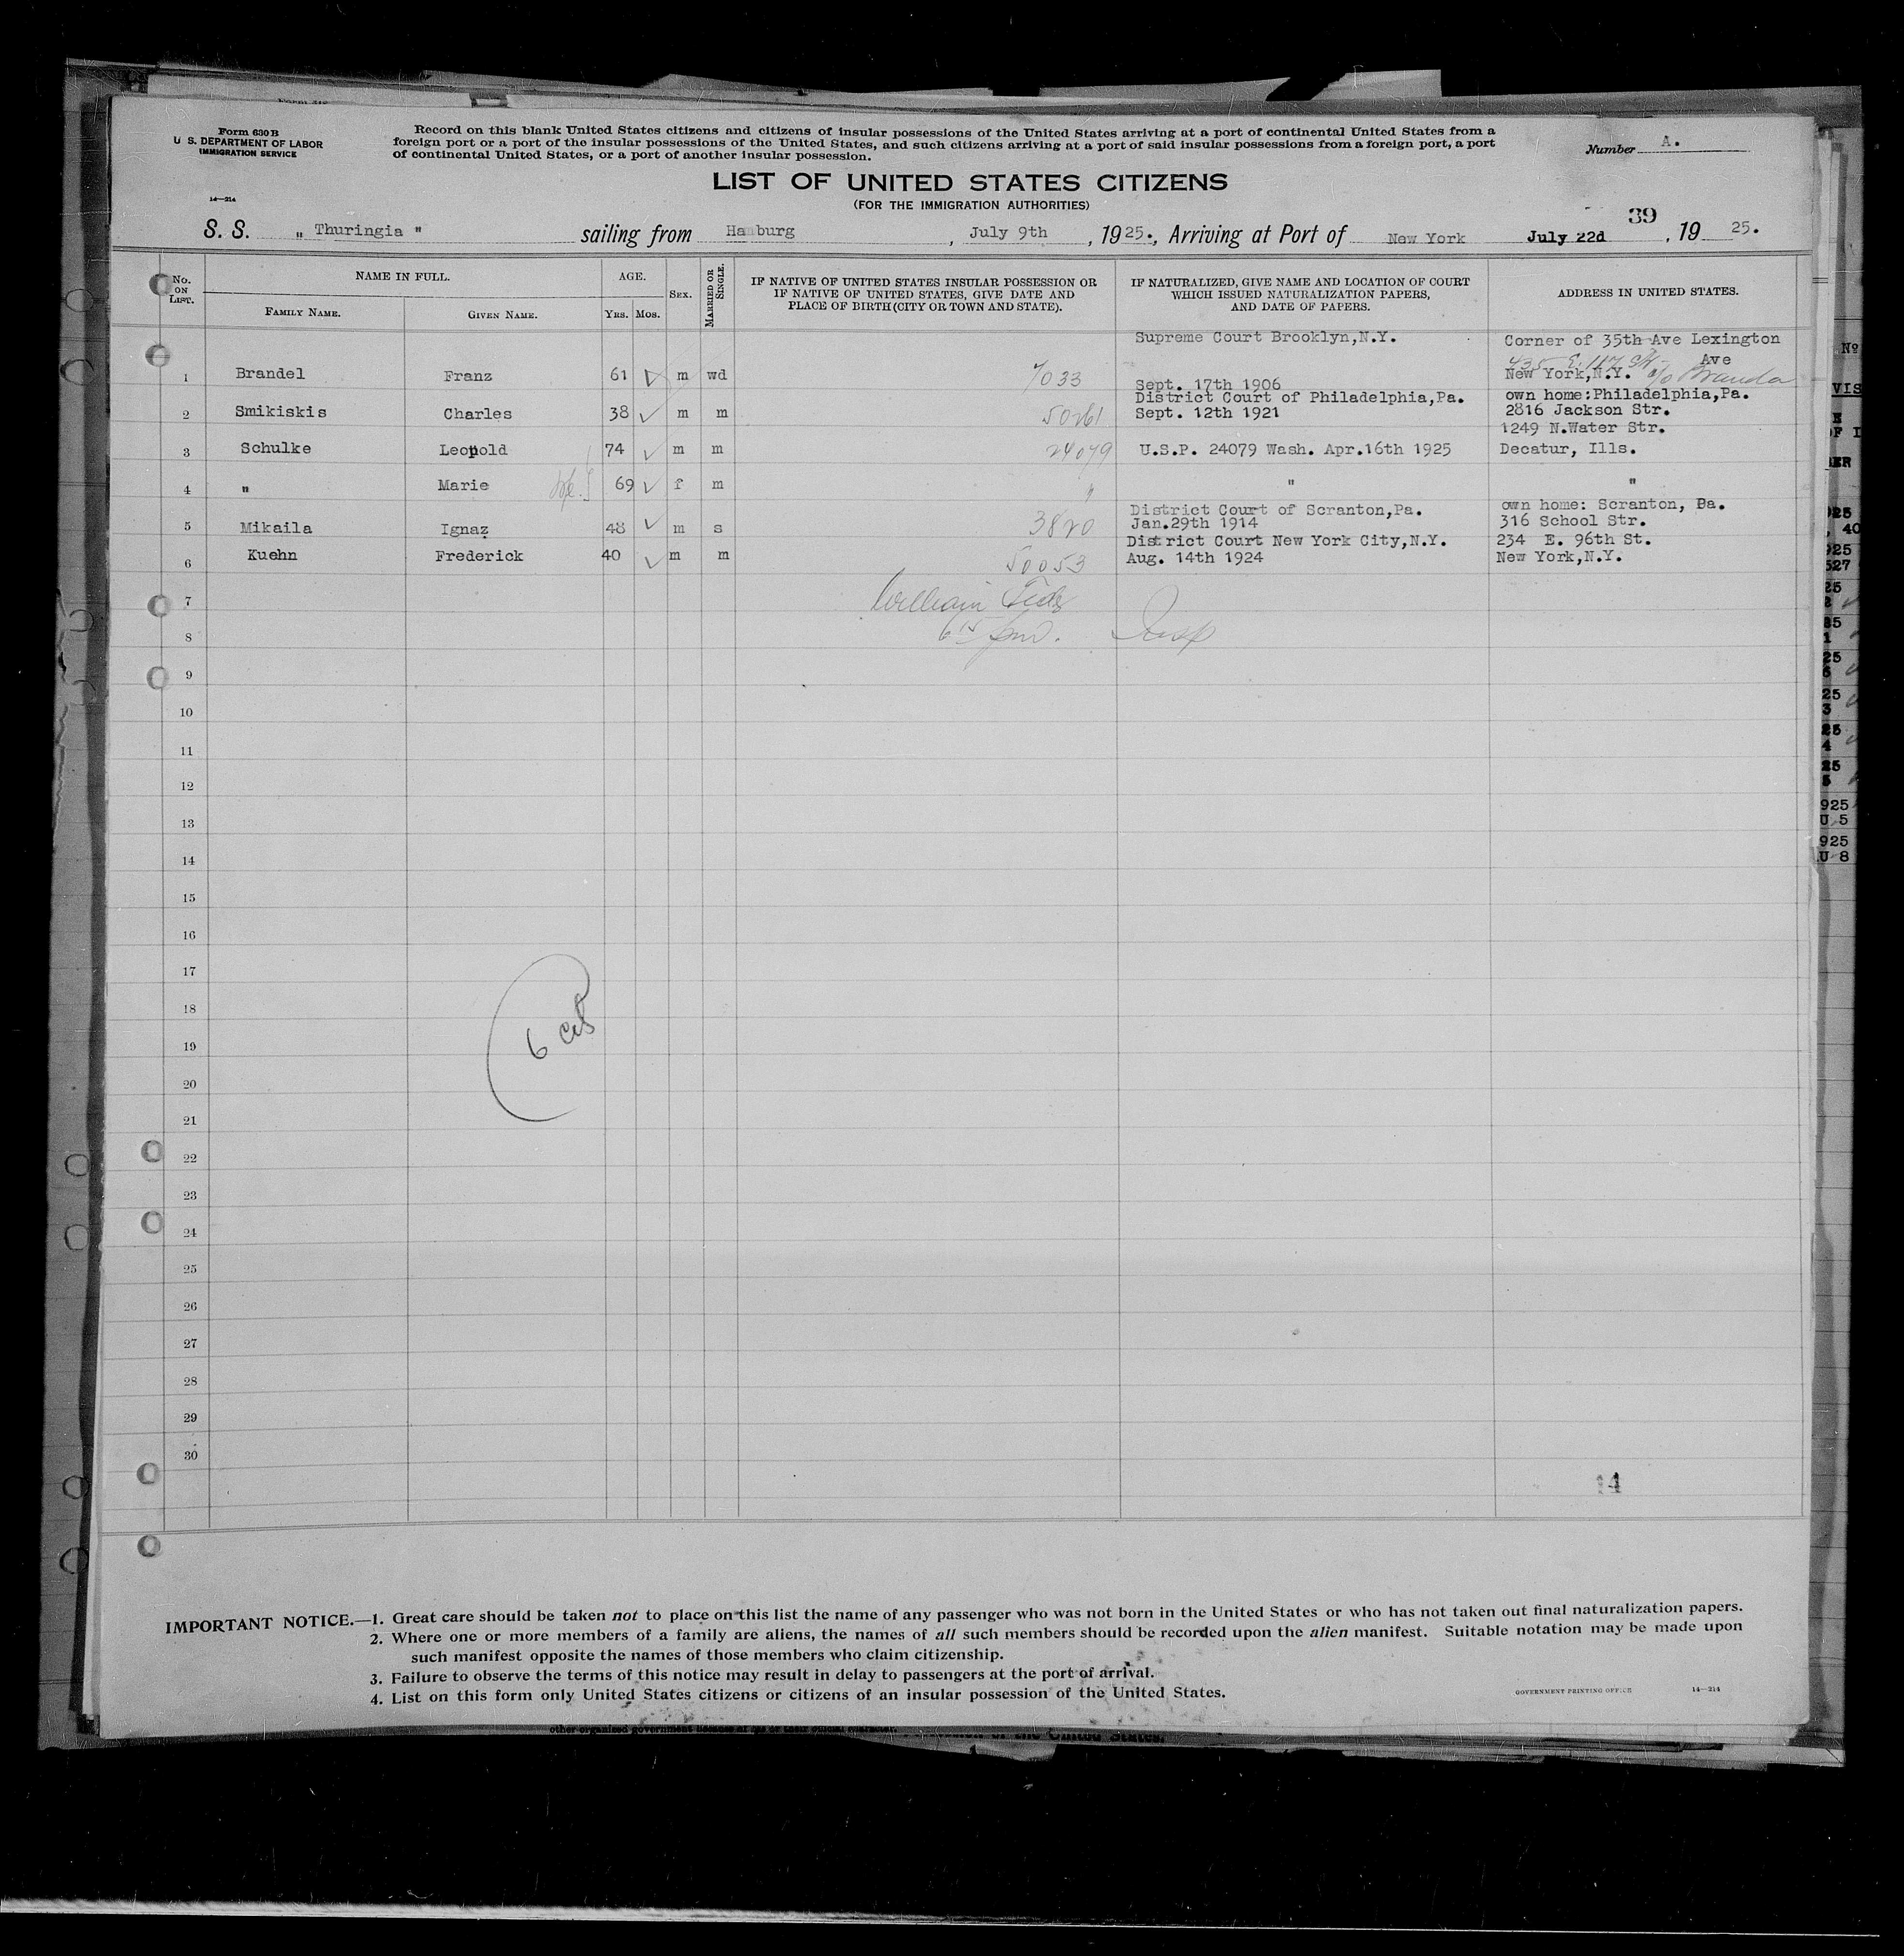 Form 630 B
U. S. DEPARTMENT OF LABOR
IMMIGRATION SERVICE
14—214
Record on this blank United States citizens and citizens of insular possessions of the United States arriving at a port of continental United States from a
foreign port or a port of the insular possessions of the United States, and such citizens arriving at a port of said insular possessions from a foreign port, a port
of continental United States, or a port of another insular possession.
Number A.
LIST OF UNITED STATES CITIZENS
(FOR THE IMMIGRATION AUTHORITIES)
39
S. S. „ Thuringia " sailing from Hamburg, July 9th, 1925., Arriving at Port of New York July 22d, 1925.
No. ON LIST.
NAME IN FULL.
FAMILY NAME.
GIVEN NAME.
AGE.
YRS. MOS.
SEX.
MARRIED OR SINGLE.
IF NATIVE OF UNITED STATES INSULAR POSSESSION OR
IF NATIVE OF UNITED STATES, GIVE DATE AND
PLACE OF BIRTH (CITY OR TOWN AND STATE).
IF NATURALIZED, GIVE NAME AND LOCATION OF COURT
WHICH ISSUED NATURALIZATION PAPERS,
AND DATE OF PAPERS.
ADDRESS IN UNITED STATES.
Supreme Court Brooklyn,N.Y. Corner of 35th Ave Lexington
435 E. 117 St Ave
1 Brandel Franz 61 m wd 7033 Sept. 17th 1906 New York,N.Y. c/o
District Court of Philadelphia,Pa. own home:Philadelphia,Pa.
2 Smikiskis Charles 38 m m 50261 Sept. 12th 1921 2816 Jackson Str.
1249 N.Water Str.
3 Schulke Leopold 74 m m 24079 U.S.P. 24079 Wash. Apr.16th 1925 Decatur, Ills.
4 " Marie 69 f m " " "
District Court of Scranton,Pa. own home: Scranton, Pa.
5 Mikaila Ignaz 48 m s 3820 Jan.29th 1914 316 School Str.
District Court New York City,N.Y. 234 E. 96th St.
6 Kuehn Frederick 40 m m 50053 Aug. 14th 1924 New York,N.Y.
William
7
8
Insp
9
10
11
12
13
14
15
16
17
18
6 cit
19
20
21
22
23
24
25
26
27
28
29
30
14
IMPORTANT NOTICE.—1. Great care should be taken not to place on this list the name of any passenger who was not born in the United States or who has not taken out final naturalization papers.
2. Where one or more members of a family are aliens, the names of all such members should be recorded upon the alien manifest. Suitable notation may be made upon
such manifest opposite the names of those members who claim citizenship.
3. Failure to observe the terms of this notice may result in delay to passengers at the port of arrival.
4. List on this form only United States citizens or citizens of an insular possession of the United States.
GOVERNMENT PRINTING OFFICE 14—214